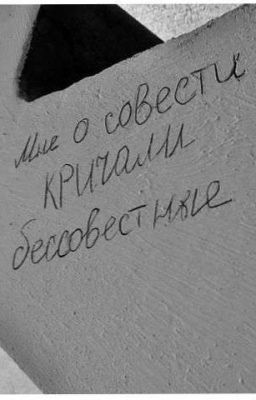 Мне о совести
КРИЧАЛИ
бессовестные